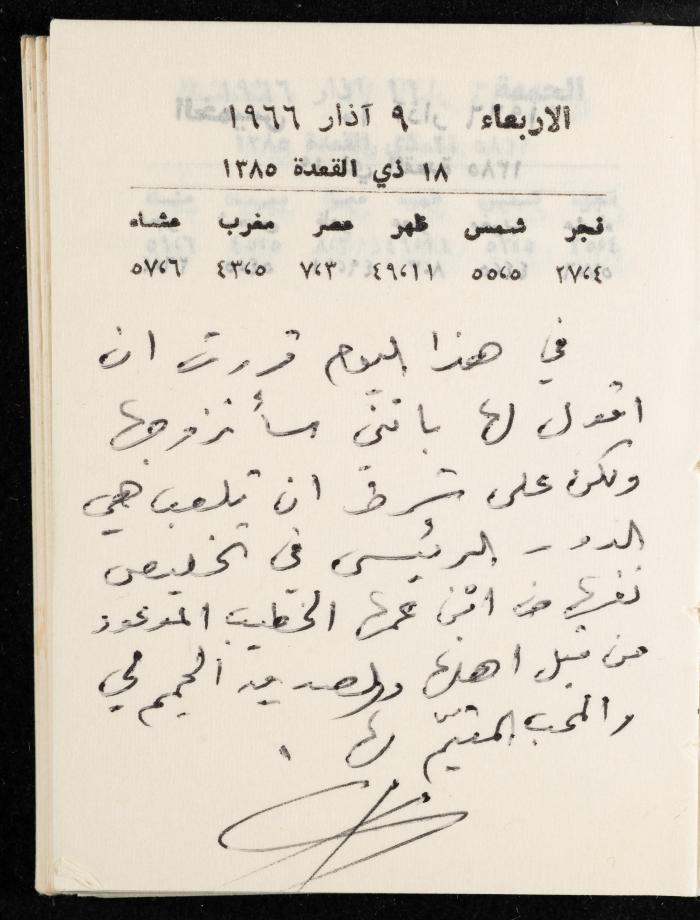 الاربعاء ٩ آذار ١٩٦٦
١٨ ذي القعدة ١٣٨٥
فجر شمس ظهر عصر مغرب عشاء
٢٧،٤ ٥٥،٥ ٤٩،١١ ٧،٣ ٤٣،٥ ٥٧،٦
في هذا اليوم قررت ان
اقول لها بانني سأتزوجها
ولكن على شرط ان تلعب هي
الدور الرئيسي في تخليص
نفسها من ابن عمها الخطيب الموعود
من قبل اهلها والصديق الحميم لي
والمحب المتيّم لها .